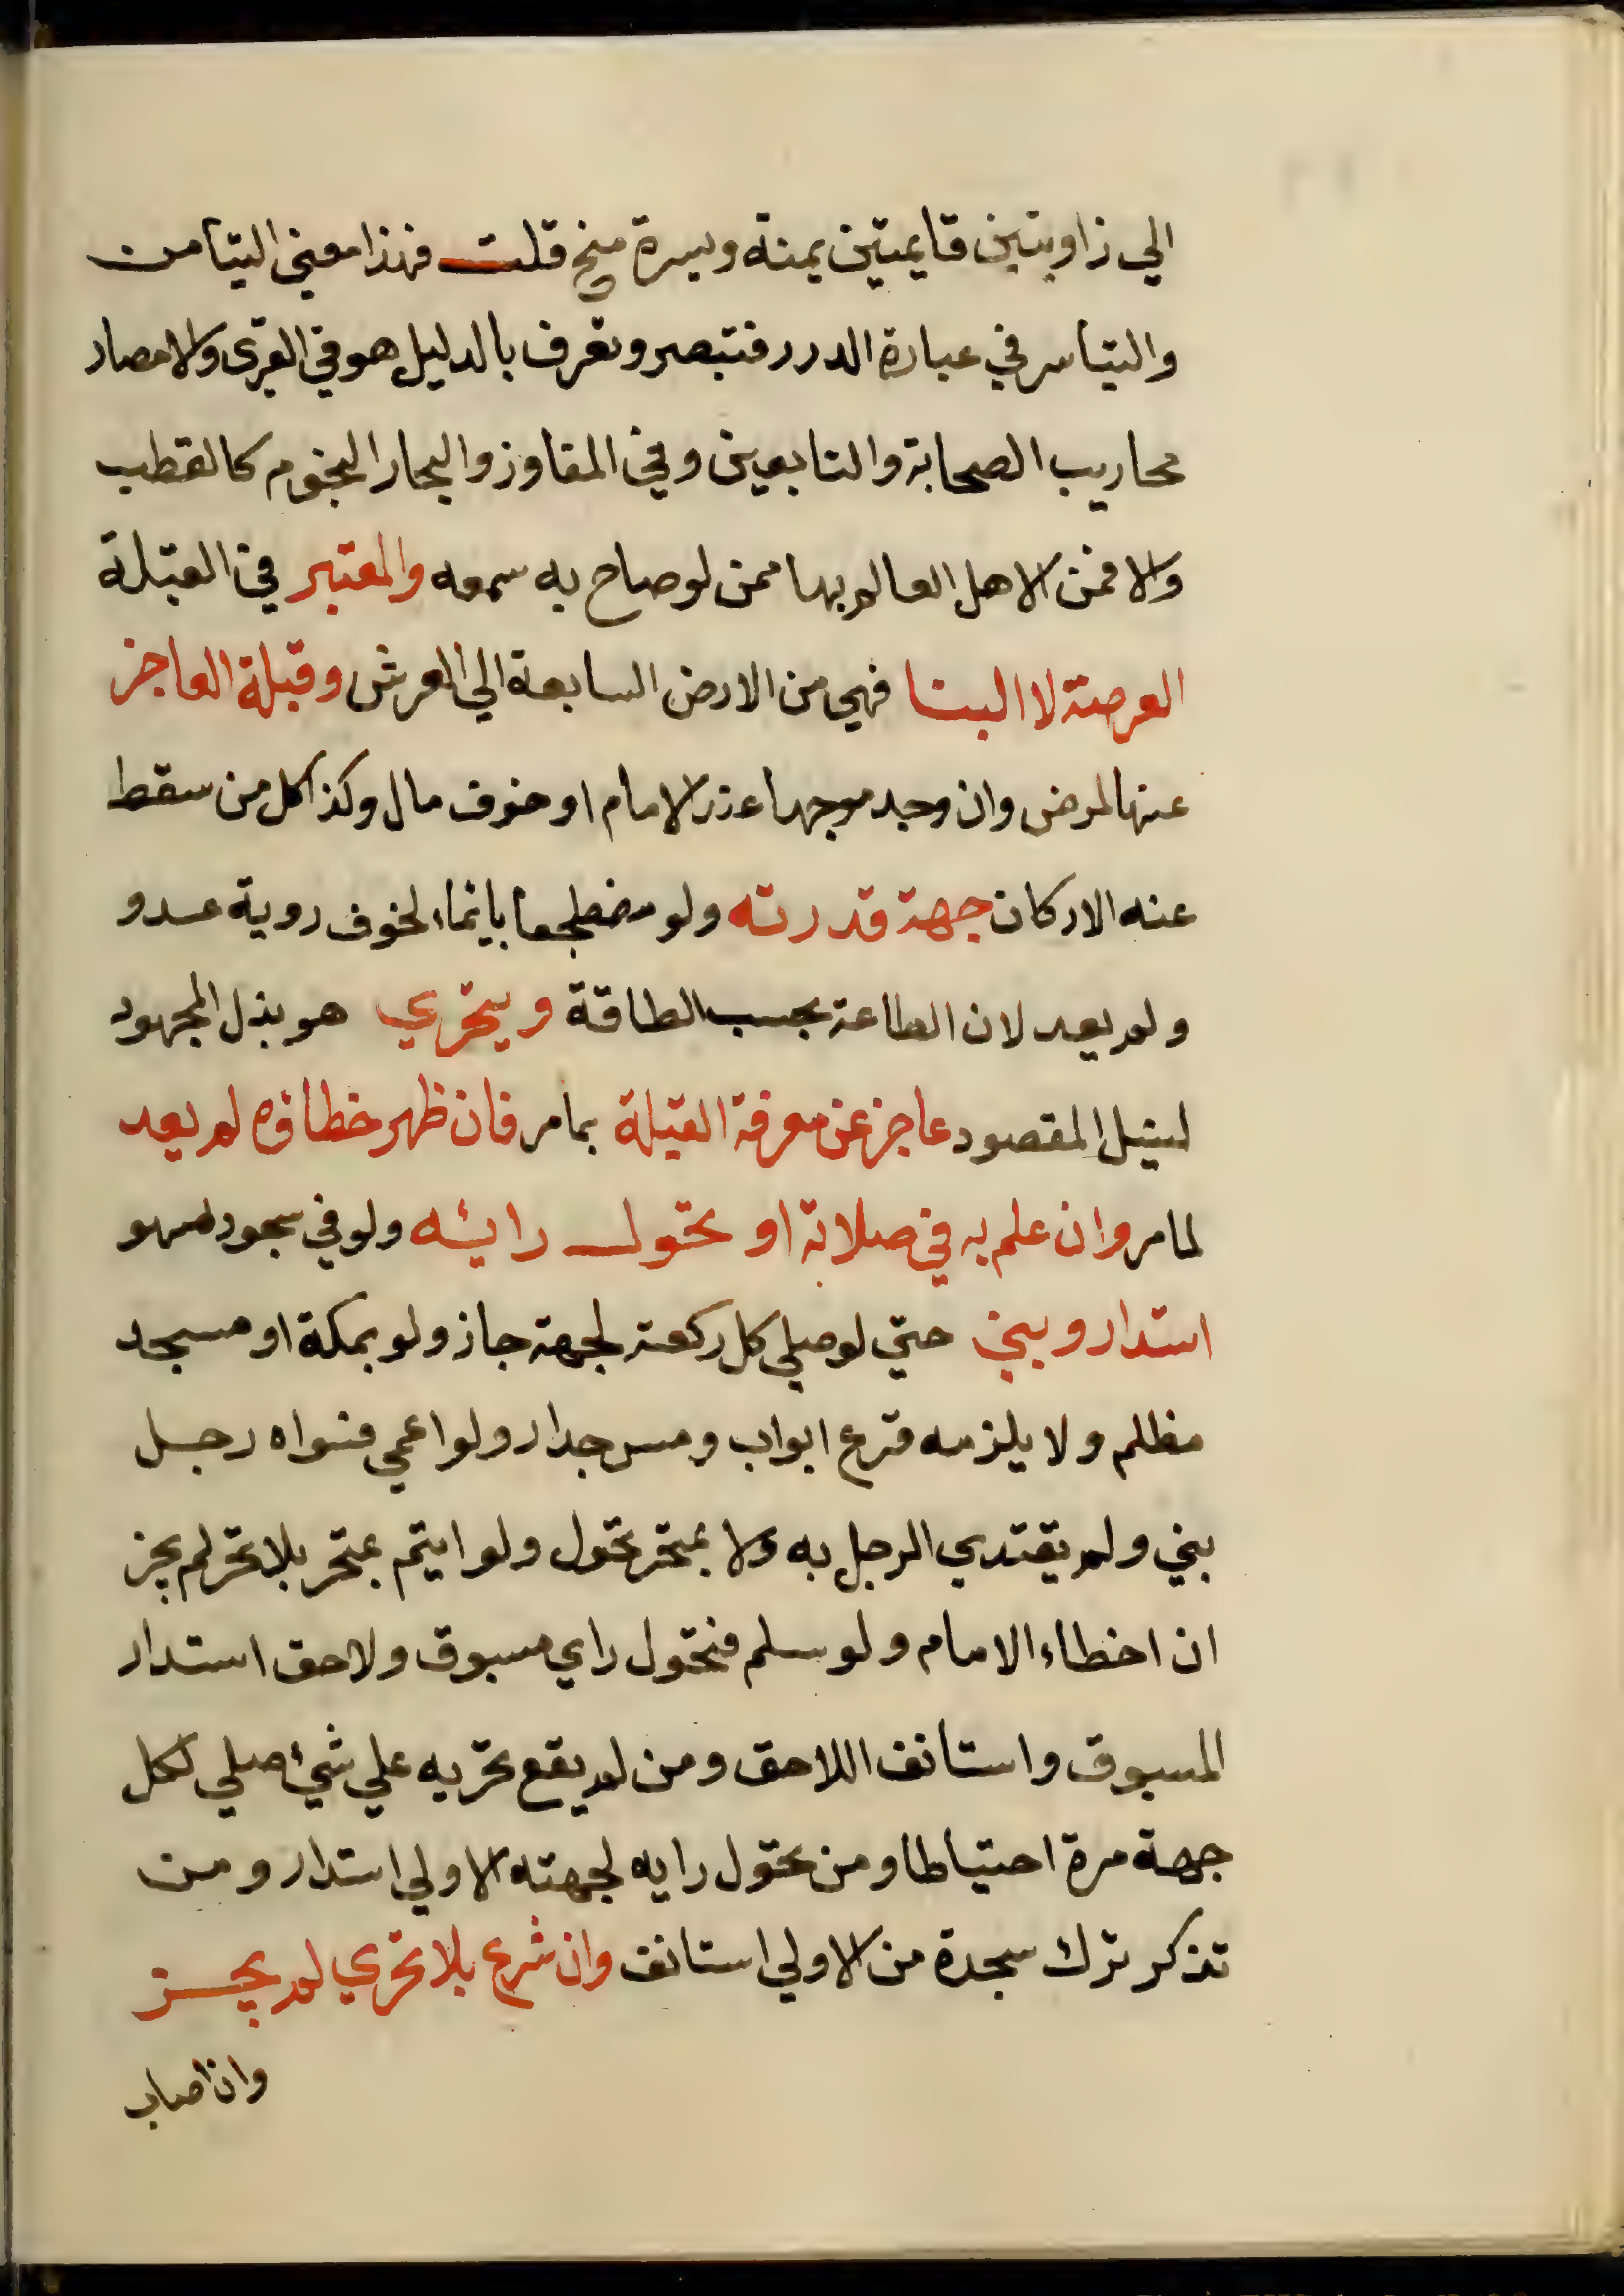 الي زاويتين قايمتين يمنة ويسرة منح قلت فهذا معني التيامن
والتياسر في عبارة الدرر فتبصر وتعرف بالدليل هو في القرى والامصار
محاريب الصحابة والتابعين وفي المفاوز والبحار النجوم كالقطب
والا فمن الاهل العالم بها ممن لو صاح به سمعه والمعتبر في القبلة
العرصة لا البنا فهي من الارض السابعة الي العرش وقبلة العاجز
عنها لمرض وان وجد موجها عند الامام او خوف مال وكذا كل من سقط
عنه الاركان جهة قدرته ولو مضطجعا بايماء لخوف روية عدو
ولم يعد لان الطاعة بحسب الطاقة ويتحري هو بذل المجهود
لنيل المقصود عاجز عن معرفة القبلة بما مر فان ظهر خطاؤه لم يعد
لما مر وان علم به في صلاته او تحول رايئه ولو في سجود سهو
استدار وبني حتي لو صلي كل ركعة لجهة جاز ولو بمكة او مسجد
مظلم ولا يلزمه قرع ابواب ومس جدار ولو اعمي فسواه رجل
بني ولم يقتدي الرجل به ولا بمتحر تحول ولو ايتم بمتحر بلا تحر لم يجز
ان اخطاء الامام ولو سلم فتحول راي مسبوق ولاحق استدار
المسبوق واستانف اللاحق ومن لم يقع تحريه علي شيئ صلي لكل
جهة مرة احتياطا ومن تحول رايه لجهته الاولي استدار ومن
تذكر ترك سجدة من الاولي استانف وان شرع بلا تحري لم يجز
وان اصاب